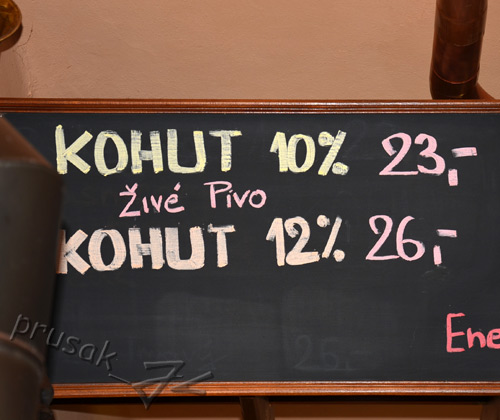 KOHUT 10% 23,-
živé Pivo
KOHUT 12% 26,-
Ene
prusak